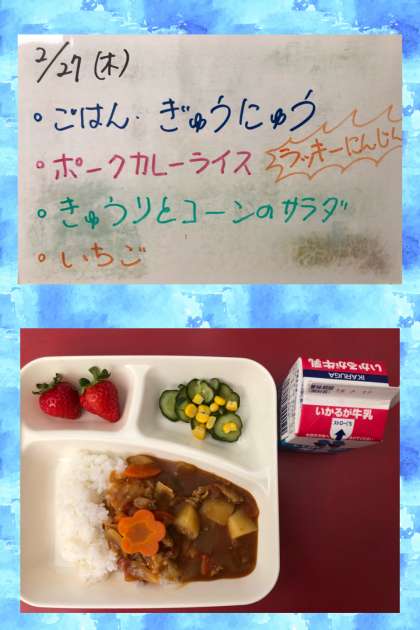 2/27 (木)
・ごはん・ぎゅうにゅう
・ポークカレーライス
ラッキーにんじん
・きゅうりとコーンのサラダ
・いちご
いかるが牛乳
IKARUGA
いかるが牛乳